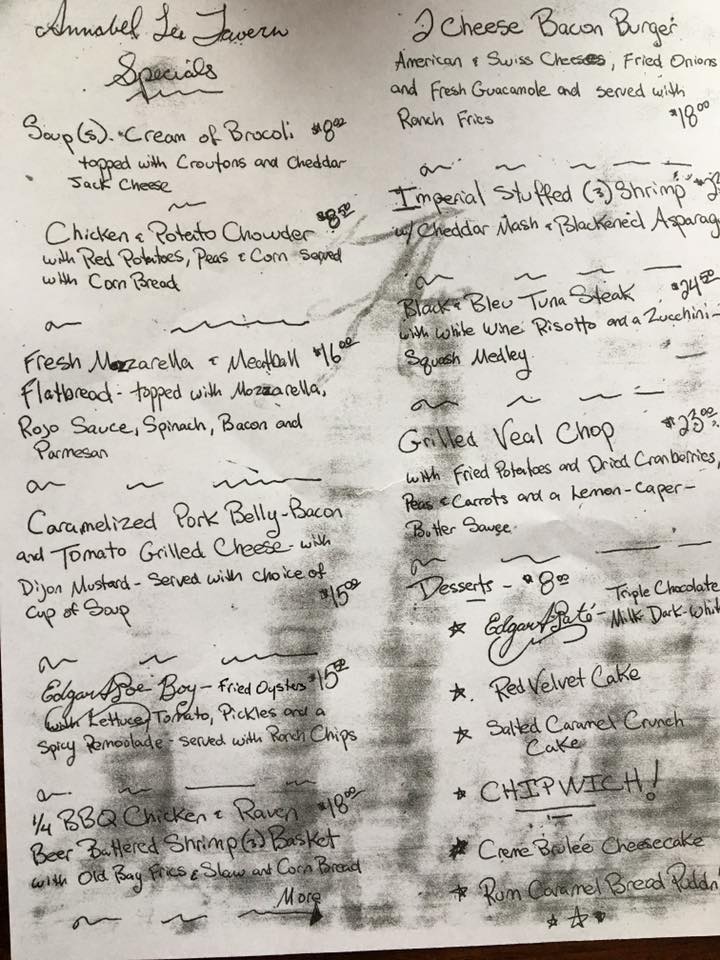 Annabel Lee Tavern
Specials
Soup(s). Cream of Brocoli $8.00
topped with Croutons and Cheddar
Jack Cheese
Chicken & Potato Chowder $8.50
with Red Potatoes, Peas & Corn Served
with Corn Bread
Fresh Mozzarella & Meatball $16.00
Flatbread - topped with Mozzarella,
Rojo Sauce, Spinach, Bacon and
Parmesan
Caramelized Pork Belly-Bacon
and Tomato Grilled Cheese - with
Dijon Mustard - Served with choice of
Cup of Soup $15.00
Edgar A Poe Boy - Fried Oysters $15.00
with Lettuce, Tomato, Pickles and a
Spicy Remoolade - served with Ranch Chips
1/4 BBQ Chicken & Raven $18.00
Beer Battered Shrimp (3) Basket
with Old Bay Fries & Slaw and Corn Bread
More
2 Cheese Bacon Burger
American & Swiss Cheeses, Fried Onions
and Fresh Guacamole and served with
Ranch Fries $18.00
Imperial Stuffed (3) Shrimp
w/ Cheddar Mash & Blackened Asparag
Black & Bleu Tuna Steak $24.50
with White Wine Risotto and a Zucchini-
Squash Medley
Grilled Veal Chop $23.00
with Fried Potatoes and Dried Cranberries,
Peas & Carrots and a Lemon-Caper-
Butter Sauce.
Desserts - $8.00
Edgar A Paté - Triple Chocolate
Milk-Dark-White
Red Velvet Cake
Salted Caramel Crunch
Cake
CHIPWICH!
Creme Brulée Cheesecake
Rum Caramel Bread Puddn